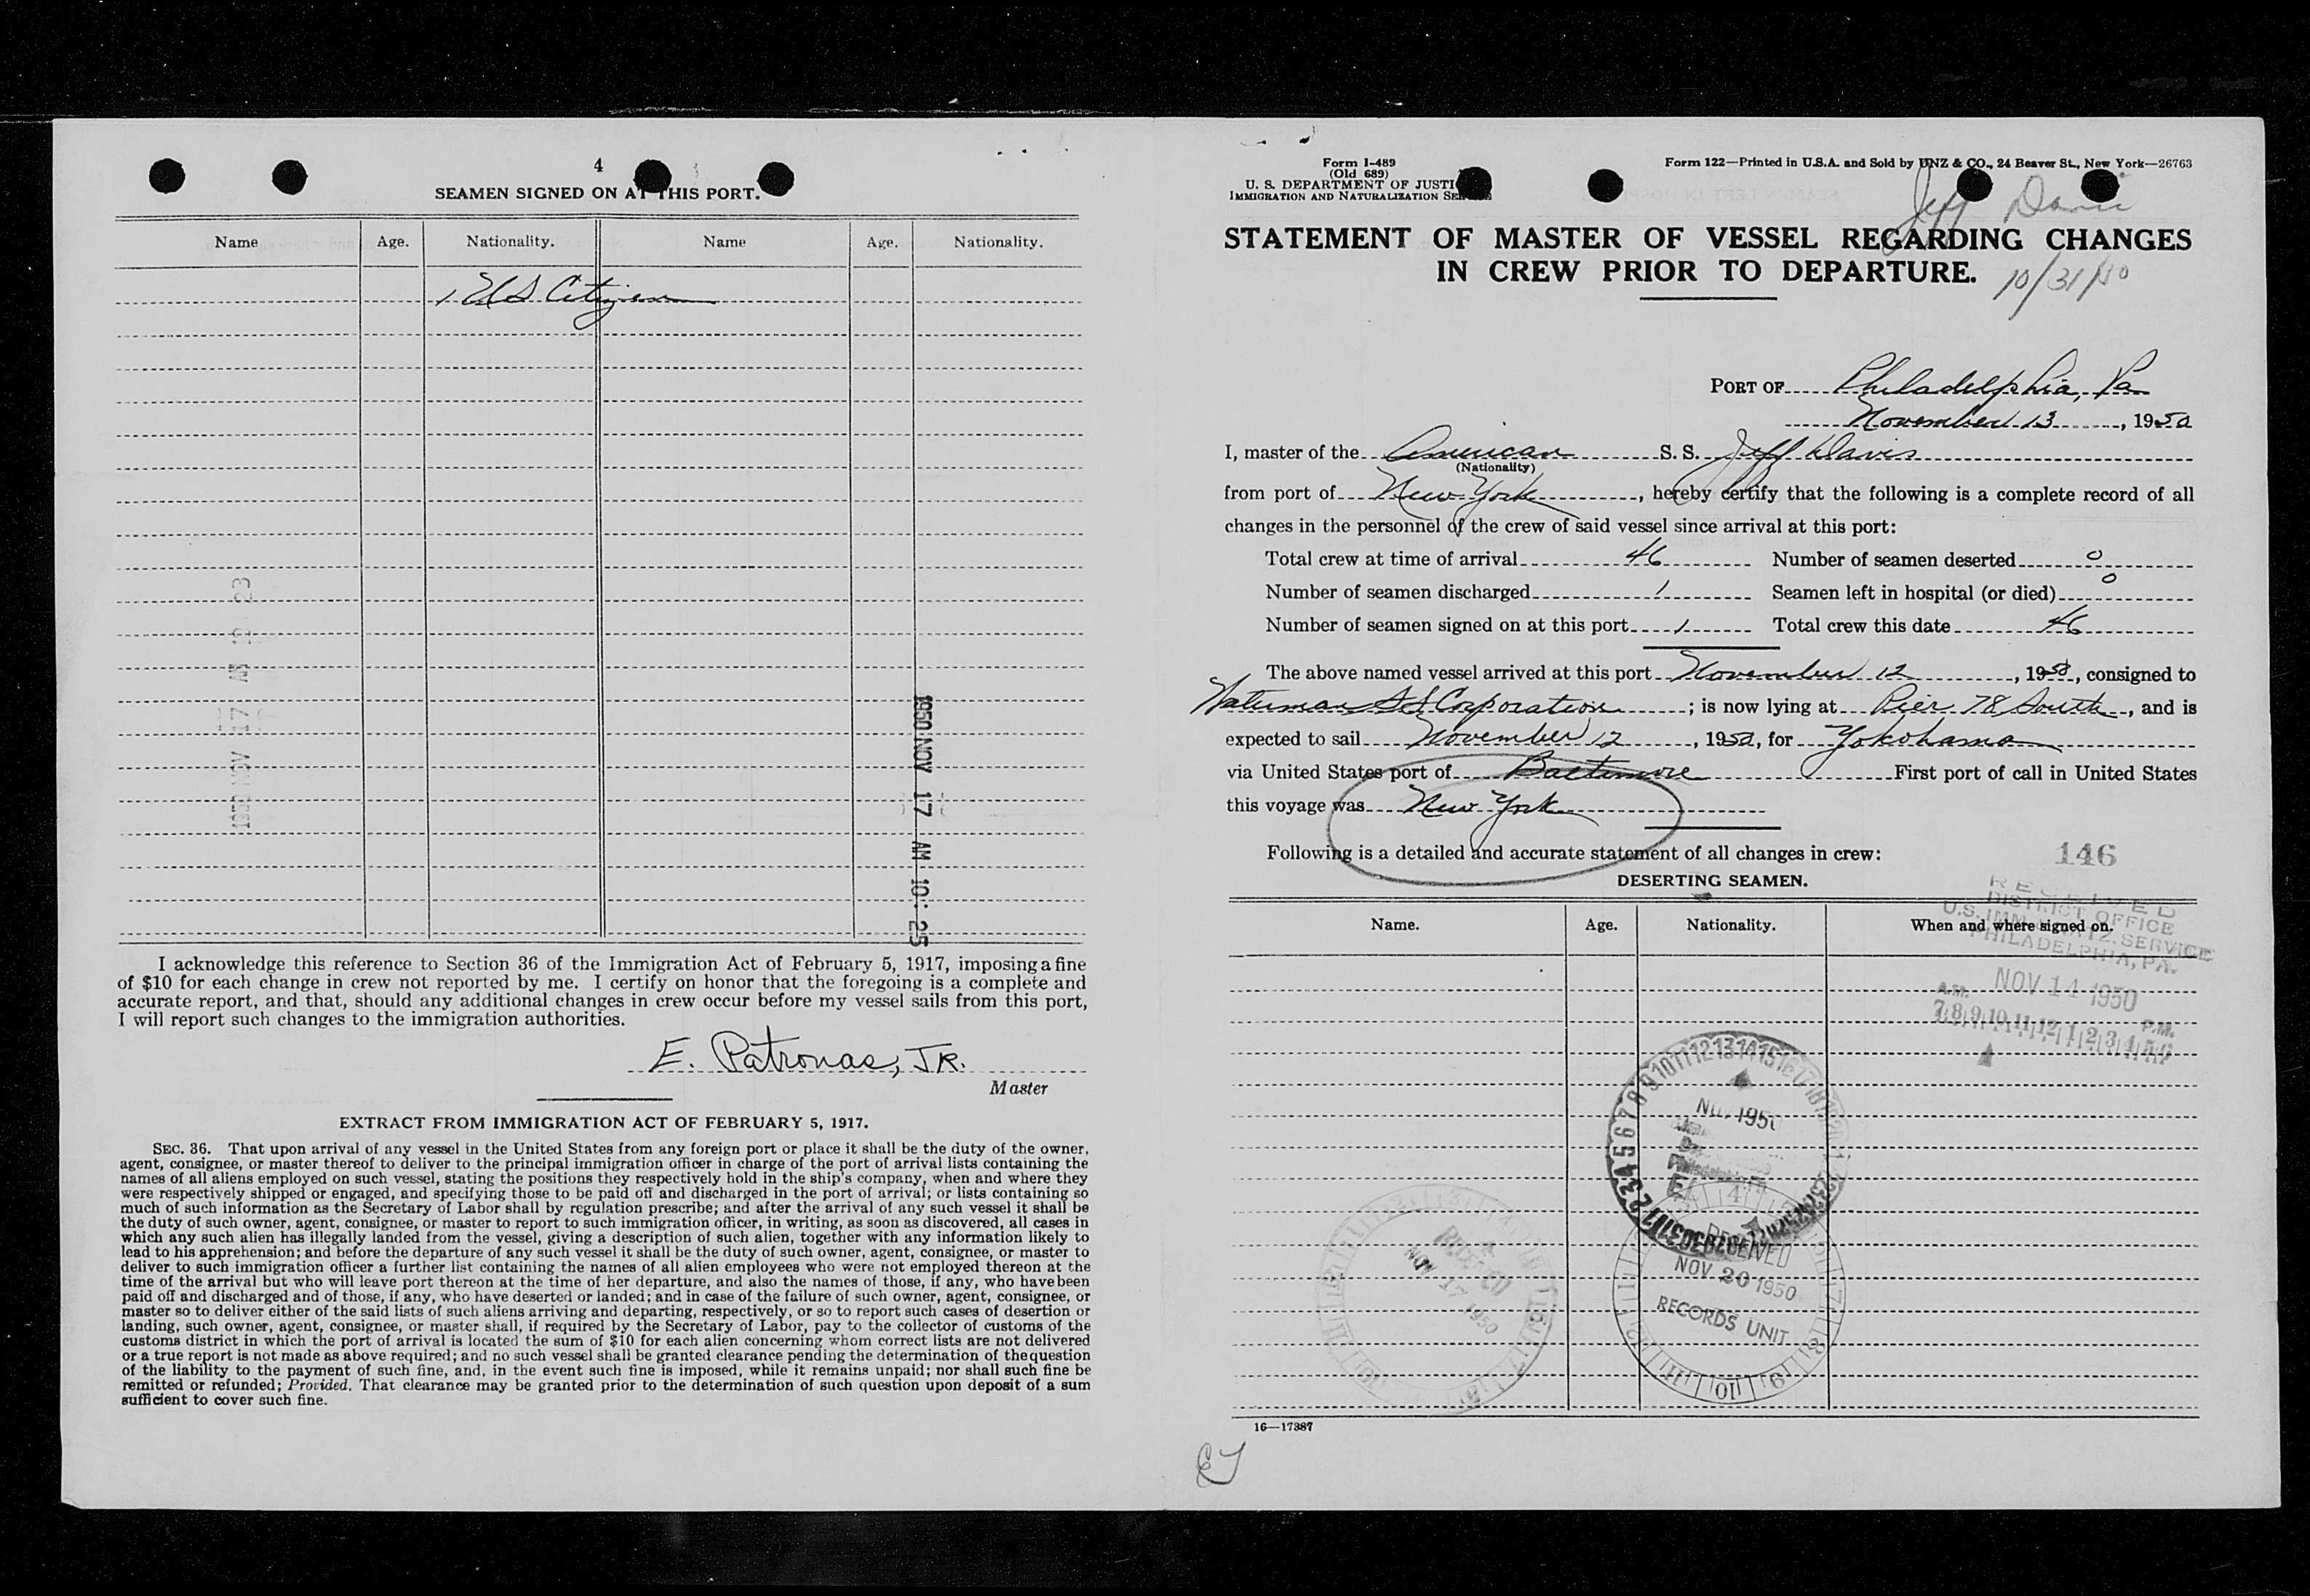 4
SEAMEN SIGNED ON AT THIS PORT.
Name Age. Nationality. Name Age. Nationality.
1 US Citizen
1950 NOV 17 AM 10:23
1950 NOV 17 AM 10:25
I acknowledge this reference to Section 36 of the Immigration Act of February 5, 1917, imposing a fine
of $10 for each change in crew not reported by me. I certify on honor that the foregoing is a complete and
accurate report, and that, should any additional changes in crew occur before my vessel sails from this port,
I will report such changes to the immigration authorities.
E. Patronas, JR.
Master
EXTRACT FROM IMMIGRATION ACT OF FEBRUARY 5, 1917.
SEC. 36. That upon arrival of any vessel in the United States from any foreign port or place it shall be the duty of the owner,
agent, consignee, or master thereof to deliver to the principal immigration officer in charge of the port of arrival lists containing the
names of all aliens employed on such vessel, stating the positions they respectively hold in the ship's company, when and where they
were respectively shipped or engaged, and specifying those to be paid off and discharged in the port of arrival; or lists containing so
much of such information as the Secretary of Labor shall by regulation prescribe; and after the arrival of any such vessel it shall be
the duty of such owner, agent, consignee, or master to report to such immigration officer, in writing, as soon as discovered, all cases in
which any such alien has illegally landed from the vessel, giving a description of such alien, together with any information likely to
lead to his apprehension; and before the departure of any such vessel it shall be the duty of such owner, agent, consignee, or master to
deliver to such immigration officer a further list containing the names of all alien employees who were not employed thereon at the
time of the arrival but who will leave port thereon at the time of her departure, and also the names of those, if any, who have been
paid off and discharged and of those, if any, who have deserted or landed; and in case of the failure of such owner, agent, consignee, or
master so to deliver either of the said lists of such aliens arriving and departing, respectively, or so to report such cases of desertion or
landing, such owner, agent, consignee, or master shall, if required by the Secretary of Labor, pay to the collector of customs of the
customs district in which the port of arrival is located the sum of $10 for each alien concerning whom correct lists are not delivered
or a true report is not made as above required; and no such vessel shall be granted clearance pending the determination of the question
of the liability to the payment of such fine, and, in the event such fine is imposed, while it remains unpaid; nor shall such fine be
remitted or refunded; Provided, That clearance may be granted prior to the determination of such question upon deposit of a sum
sufficient to cover such fine.
Form I-489
(Old 689)
U. S. DEPARTMENT OF JUSTI
IMMIGRATION AND NATURALIZATION SERVICE
Form 122—Printed in U.S.A. and Sold by UNZ & CO., 24 Beaver St., New York—26763
Jeff Davis
STATEMENT OF MASTER OF VESSEL REGARDING CHANGES
IN CREW PRIOR TO DEPARTURE.
10/31/50
PORT OF Philadelphia, Pa
November 13, 1950
I, master of the American S. S. Jeff Davis
(Nationality)
from port of New York, hereby certify that the following is a complete record of all
changes in the personnel of the crew of said vessel since arrival at this port:
Total crew at time of arrival 46 Number of seamen deserted 0
Number of seamen discharged 1 Seamen left in hospital (or died) 0
Number of seamen signed on at this port 1 Total crew this date 46
The above named vessel arrived at this port November 12, 1950, consigned to
Waterman SS Corporation; is now lying at Pier 78 South, and is
expected to sail November 12, 1950, for Yokohama
via United States port of Baltimore First port of call in United States
this voyage was New York
Following is a detailed and accurate statement of all changes in crew:
146
DESERTING SEAMEN.
Name. Age. Nationality. When and where signed on.
RECEIVED
DISTRICT OFFICE
U.S. IMM. & NATZ. SERVICE
PHILADELPHIA, PA.
NOV 14 1950
A.M. P.M.
7 8 9 10 11 12 1 2 3 4 5 6
NOV 1950
Philadelphia
RECEIVED
NOV 20 1950
RECORDS UNIT
NOV 17 1950
16—17387